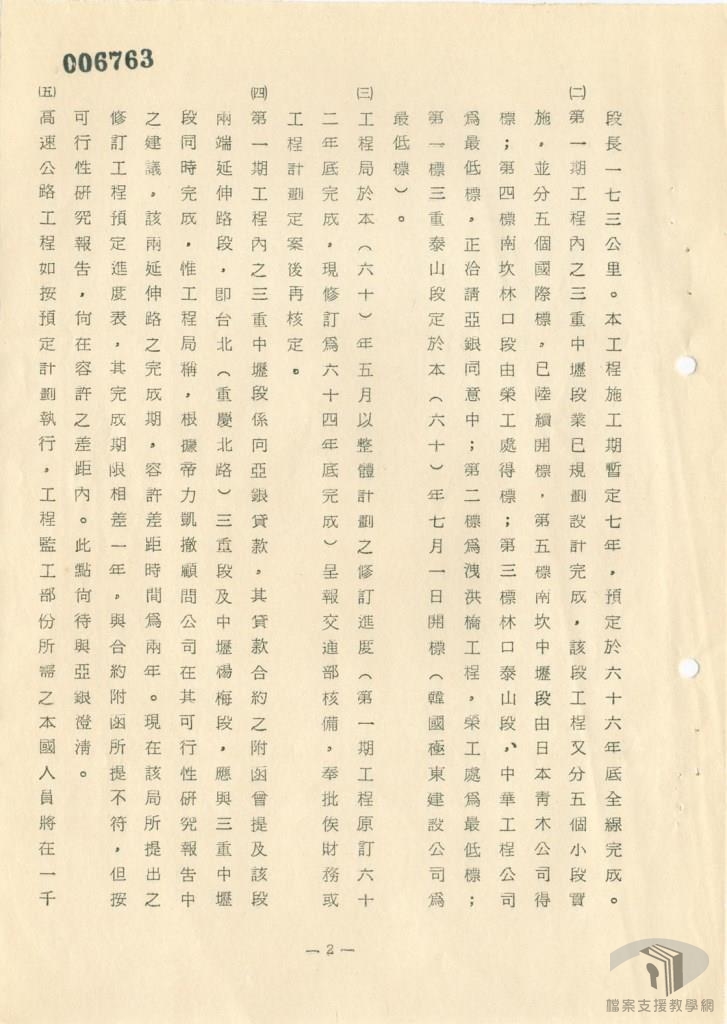 006763
段長一七三公里。本工程施工期暫定七年，預定於六十六年底全線完成。
㈡第一期工程內之三重中壢段業已規劃設計完成，該段工程又分五個小段實
施，並分五個國際標，已陸續開標，第五標南坎中壢段由日本青木公司得
標；第四標南坎林口段由榮工處得標；第三標林口泰山段、中華工程公司
為最低標，正洽請亞銀同意中；第二標為洩洪橋工程，榮工處為最低標；
第一標三重泰山段定於本（六十）年七月一日開標（韓國極東建設公司為
最低標）。
㈢工程局於本（六十）年五月以整體計劃之修訂進度（第一期工程原訂六十
二年底完成，現修訂為六十四年底完成）呈報交通部核備，奉批俟財務或
工程計劃定案後再核定。
㈣第一期工程內之三重中壢段係向亞銀貸款，其貸款合約之附函曾提及該段
兩端延伸路段，即台北（重慶北路）三重段及中壢楊梅段，應與三重中壢
段同時完成，惟工程局稱，根據帝力凱撤顧問公司在其可行性研究報告中
之建議，該兩延伸路之完成期，容許差距時間為兩年。現在該局所提出之
修訂工程預定進度表，其完成期限相差一年，與合約附函所提不符，但按
可行性研究報告，尙在容許之差距內。此點尙待與亞銀澄清。
㈤高速公路工程如按預定計劃執行，工程監工部份所需之本國人員將在一千
－2－
檔案支援教學網